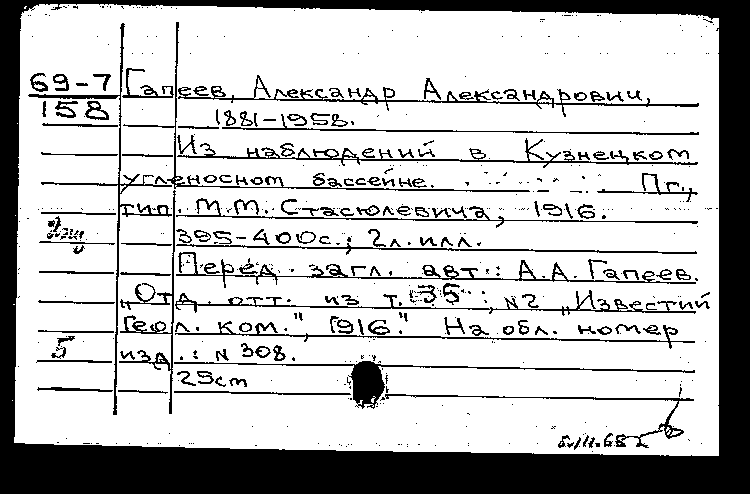 69-7 Гапеев, Александр Александрович,
158 1881-1958.
Из наблюдений в Кузнецком
угленосном бассейне. Пг.,
тип. М.М. Стасюлевича, 1916.
395-400с.; 2л.илл.
Перед. загл. авт.: А.А. Гапеев.
„Отд. отт. из т. 35, №2 „Известий
Геол. ком.", 1916." На обл. номер
5 изд.: № 308.
25cm